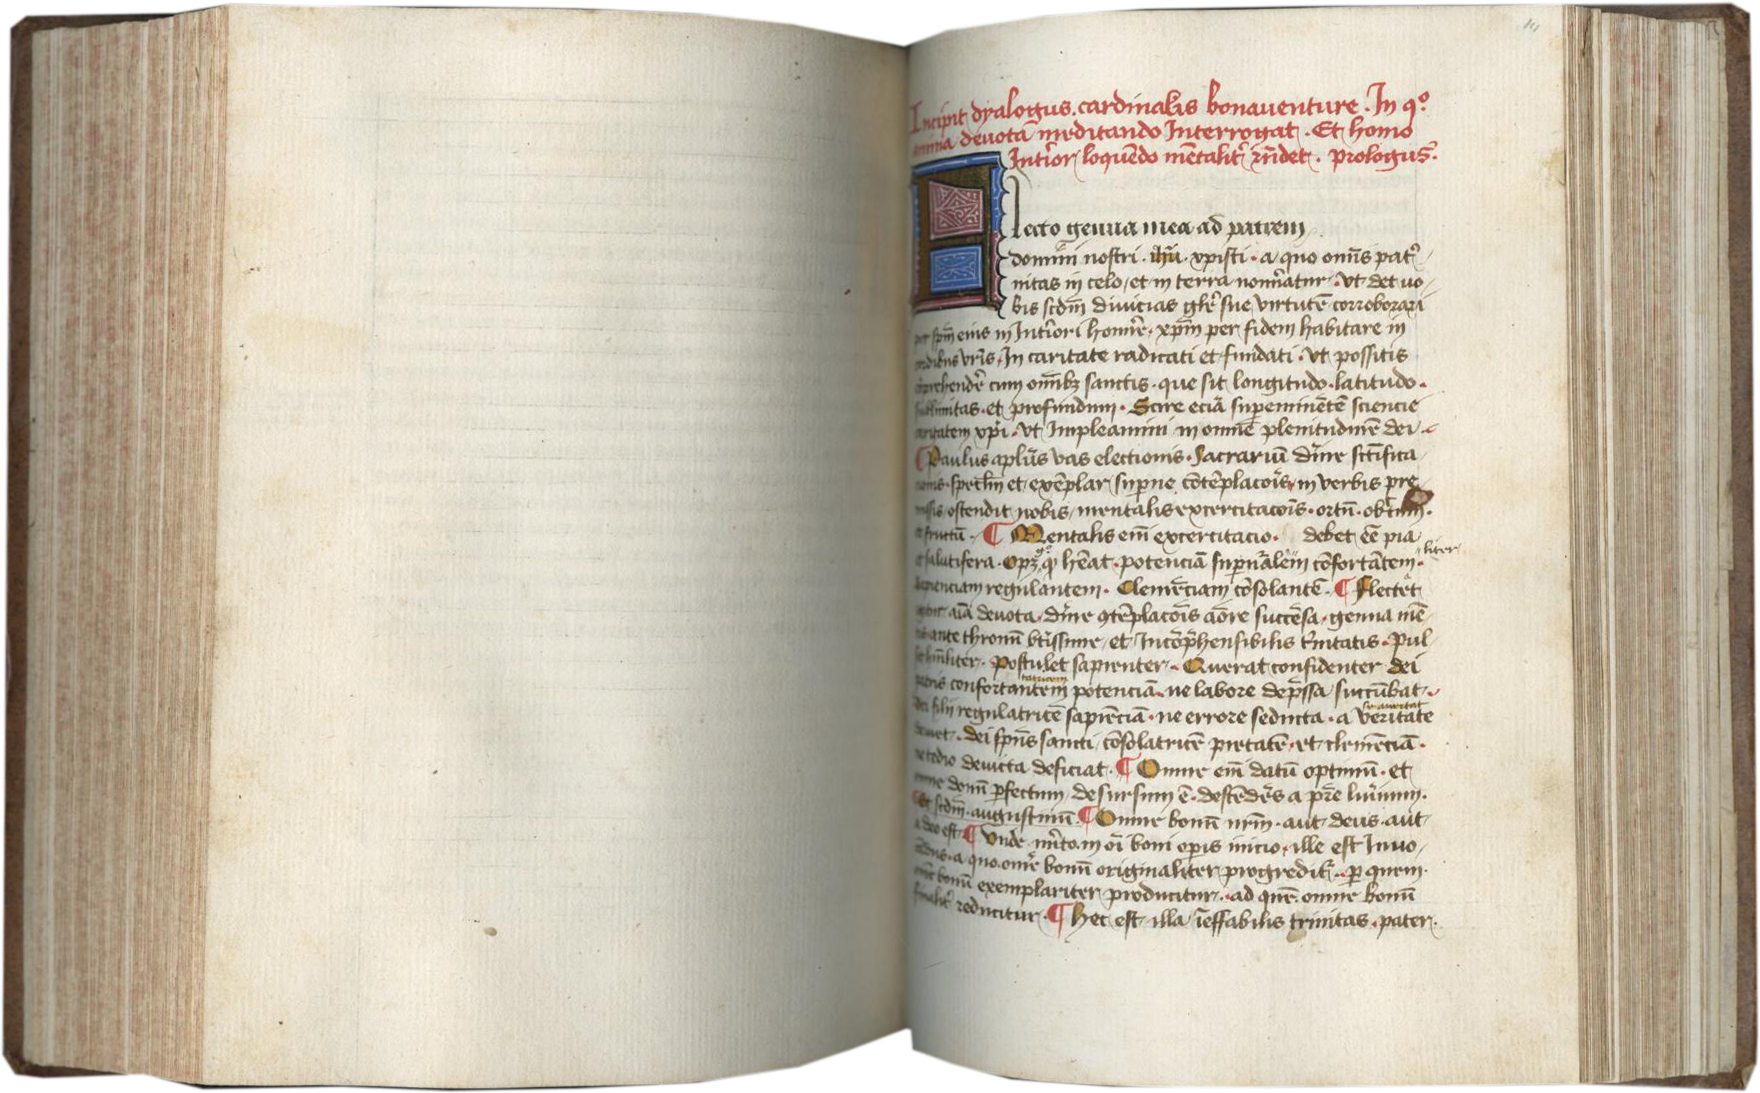 Incipit dyalogus. cardinalis bonauenture. In qº
anima deuotā meditando Interrogat. Et homo
Int̄ior loquēdo mētalit̄ rn̄det. prologus.
Flecto genua mea ad patrem
domini nostri. ihū. xpisti. a quo om̄s pat̄
nitas in celo, et in terra nomīatur. Vt det uo
bis scdm̄ diuicias glr̄e sue virtutē corroborari
per spm̄ eius in Int̄iori homīe. xpm̄ per fidem habitare in
cordibus vr̄is. In caritate radicati et fundati. vt possitis
cōprehendē cum om̄ibꝫ sanctis. que sit longitudo. latitudo.
sublimitas. et profundum. Scire eciā supeminētē sciencie
caritatem xpī. vt Impleamini in omnē plenitudinē dei.
¶ Paulus aplūs vas electionis. Sacrariū diūine sctīfica
conis. spectm̄ et exēplar supne cōtēplacoīs, in verbis pre
missis ostendit nobis, mentalis excercitacoīs. ortū. obīctum.
et fructū. ¶ Mentalis em̄ excercitacio. debet eē pia
et salutifera. Opꝫ gº ꝙ hēat. potenciā supnālem cōfortātem. liter
sapienciam regulantem. Clemēciam cōsolantē. ¶ Flectet
aīa deuota. diūine ꝯtēplacoīs aōre succēsa. genua mē
tis ante thronū btīssime, et Incōp̄hensibilis t̄nitatis. Pul
set hūiliter. Postulet sapienter. Querat confidenter dei
patris confortantem potenciā. ne labore dep̄ssa succūbat.
Dei filii regulatricē sapiēciā. ne errore seducta. a veritate
deuiet. dei spūs sancti, cōsolatricē pietatē. et clemēciā.
ne tedio deuicta deficiat. ¶ Omne em̄ datū optimū. et
omne donū pfectum, desursum ē. descēdēs a pr̄e luīnum.
¶ Et scdm̄. augustinū. ¶ Omne bonū nr̄m. aut deus. aut
a deo est. ¶ Unde mīto. in oī boni opis inicio, ille est Inuo
cādus. a quo. omē bonū originaliter progredit̄. p quem.
omē bonū exemplariter producitur. ad quē. omne bonū
finalit̄ reducitur. ¶ Hec est illa īeffabilis trinitas. pater.